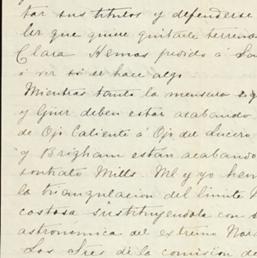 tar sus titulos y defenderse
ler que quiere quitarle terrenos
Clara. Hemos pedido á
á ver si se hace algo.
Mientras tanto la mensura
y Guir deben estar acabando
de Ojo Caliente á Ojo del Lucero
y Brigham están acabando
contrato Mills. Ml y yo hem
la triangulacion del limite
costosa sustituyendola con
astronomica del estremo Nor
Los sres de la comision de